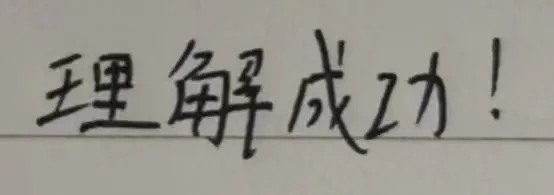 理解成功!